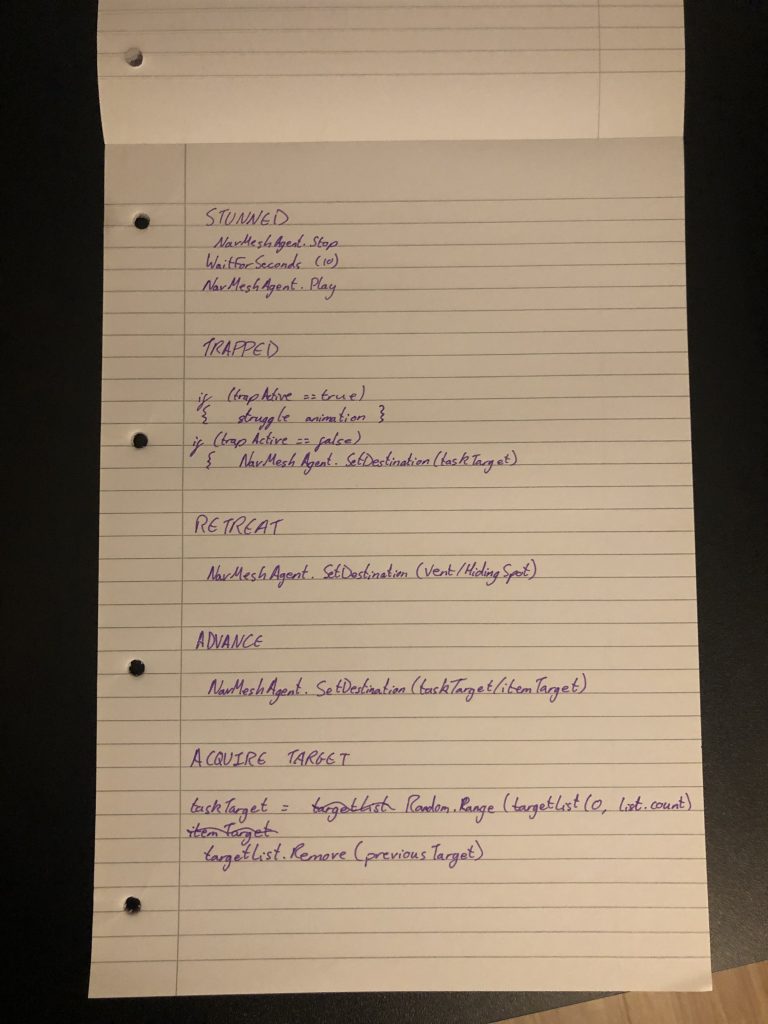 STUNNED
NavMeshAgent.Stop
WaitForSeconds (10)
NavMeshAgent.Play
TRAPPED
if (trapActive == true)
{ struggle animation }
if (trapActive == false)
{ NavMeshAgent.SetDestination(taskTarget)
RETREAT
NavMeshAgent.SetDestination (Vent/HidingSpot)
ADVANCE
NavMeshAgent.SetDestination(taskTarget/itemTarget)
ACQUIRE TARGET
taskTarget = targetList Random.Range (targetList(0, list.count)
itemTarget
targetList.Remove (previousTarget)